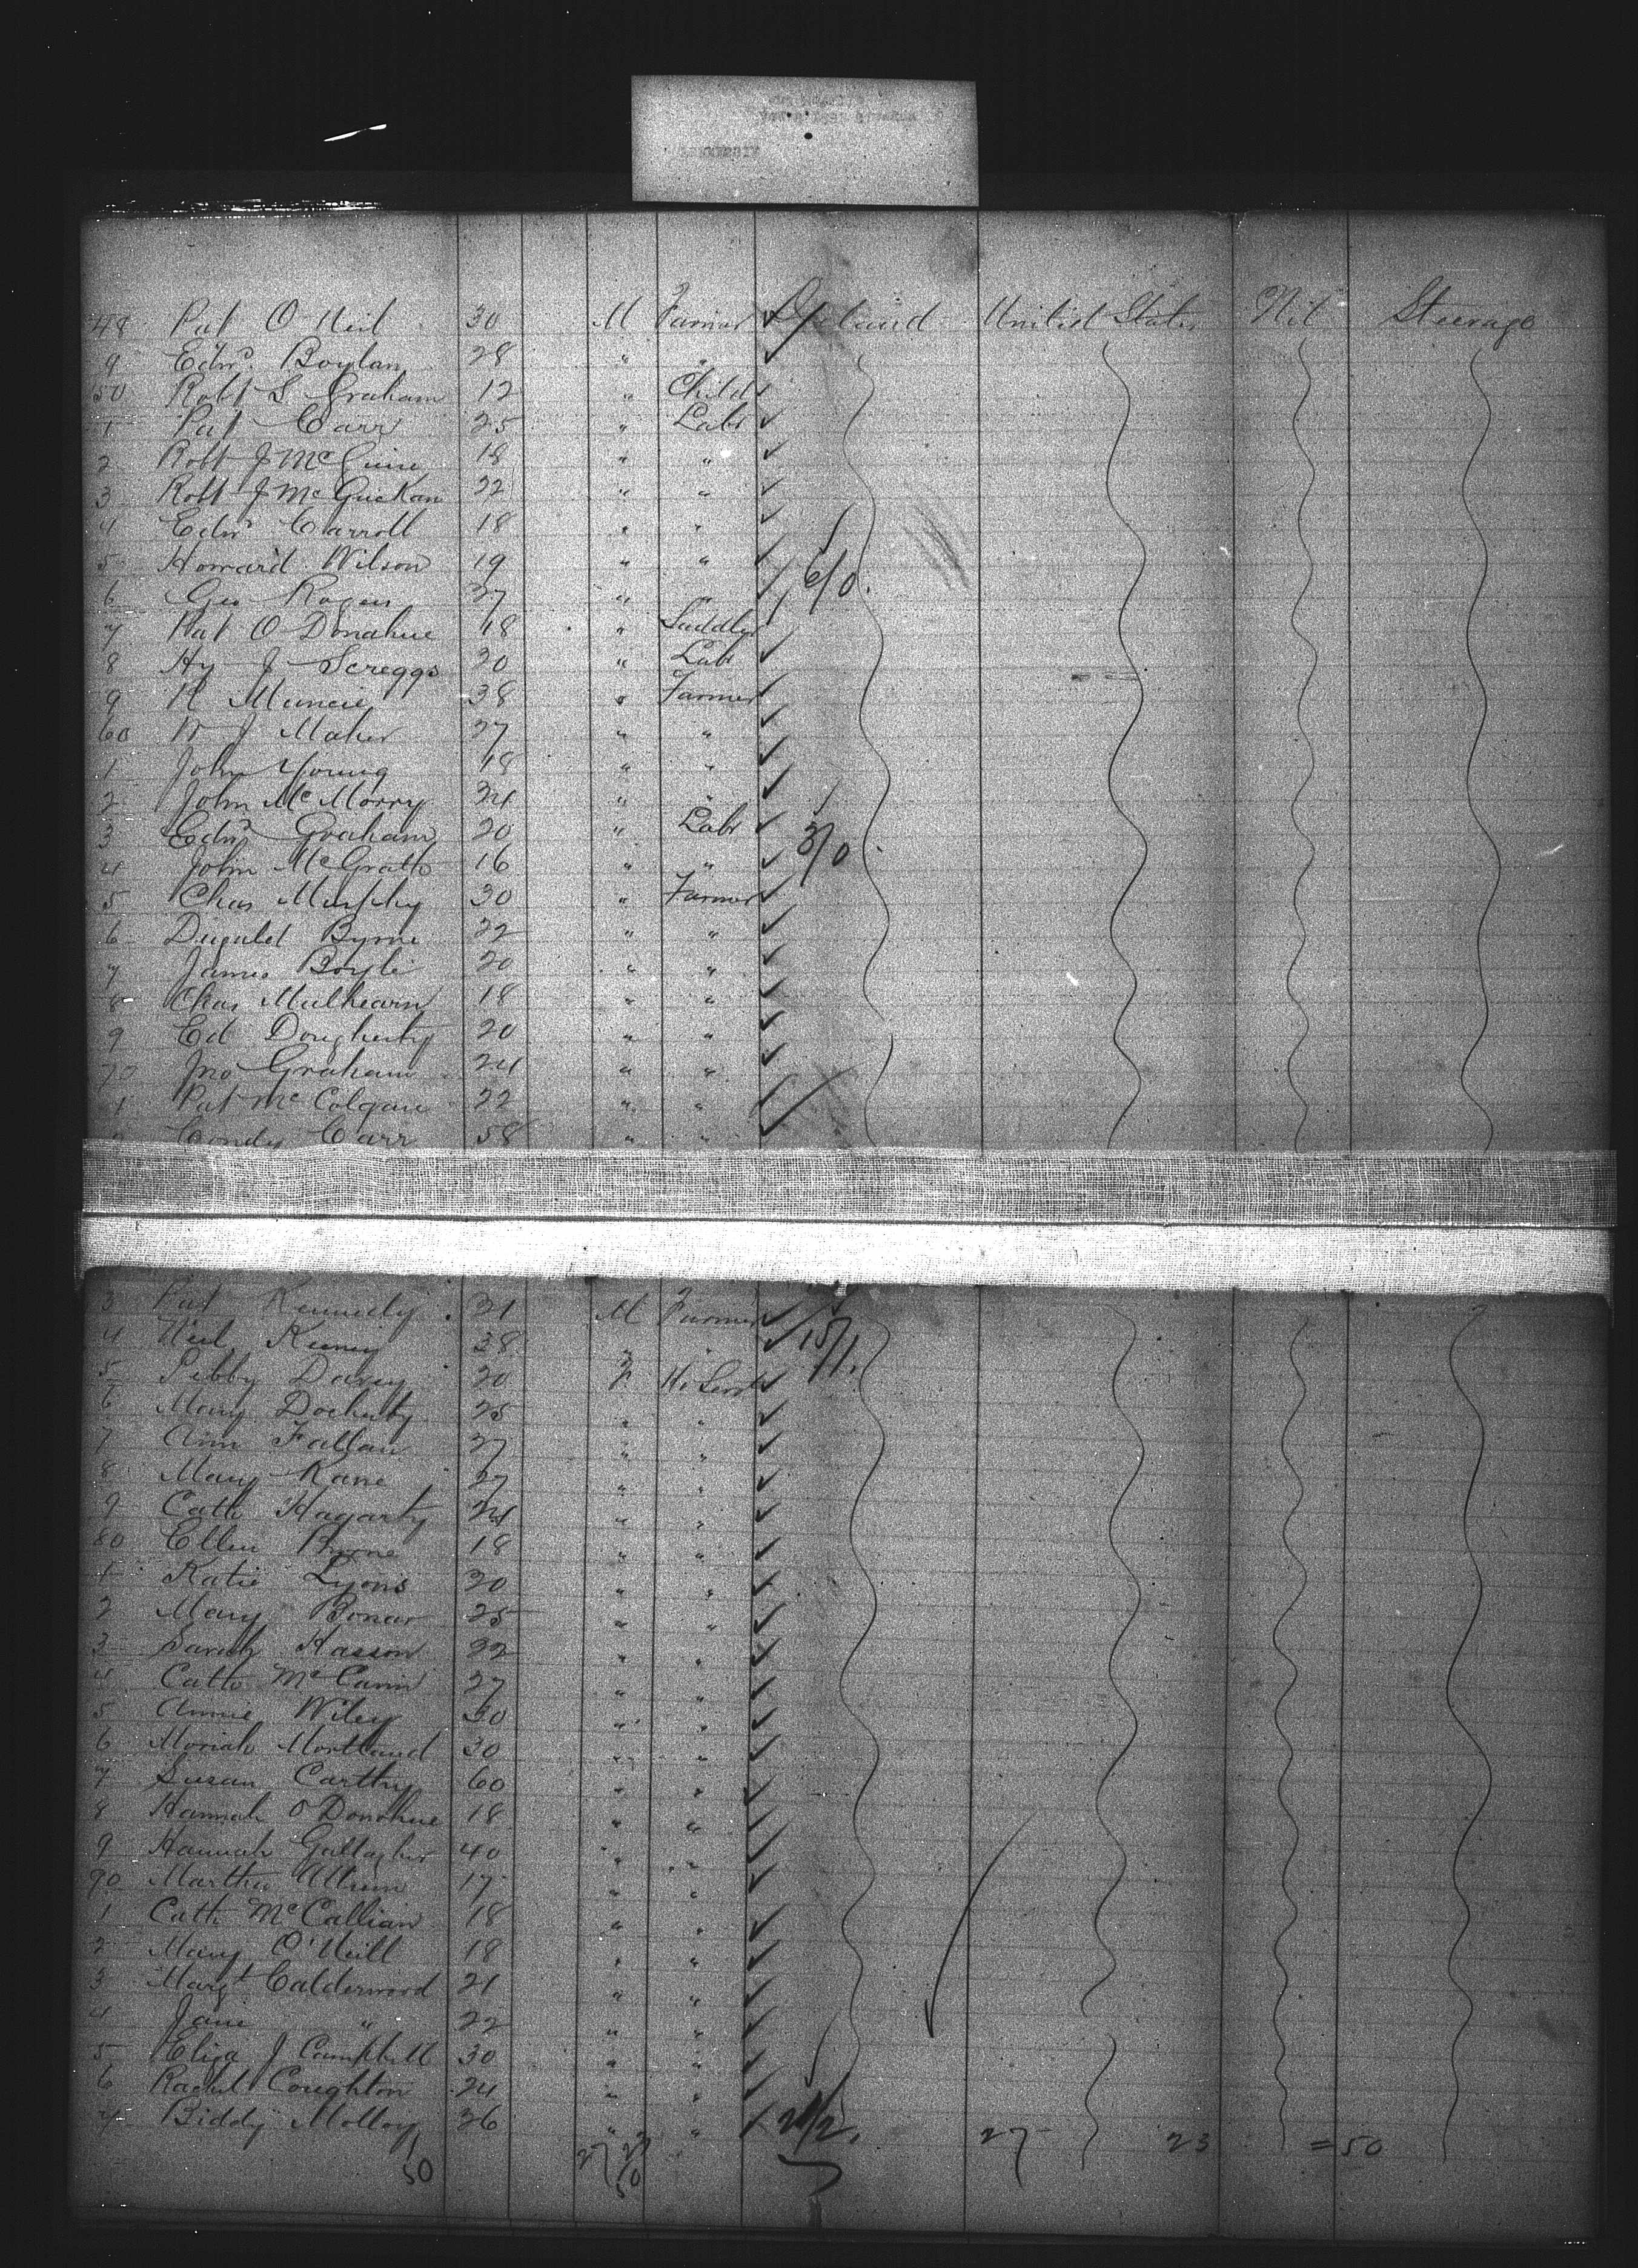 48 Pat O Neil 30 M Farmer Ireland United States Nil Steerage
9 Edwd. Boylan 28 " "
50 Robt S Graham 12 " Child
1 Pat Carr 25 " Labr
2 Robt J McGuire 18 " "
3 Robt J McGuckan 22 " "
4 Edwd Carroll 18 " "
5 Howard Wilson 19 " "
6 Geo Rogers 37 " " 6/0.
7 Pat O Donahue 18 " Saddler
8 Hy J Screggs 20 " Labr
9 R Muncie 38 " Farmer
60 W J Maher 27 " "
1 John Young 18 " "
2 John McMorry 24 " "
3 Edwd Graham 20 " Labr 3/0
4 John McGrath 16 " "
5 Chas Murphy 30 " Farmer
6 Dugald Byrne 22 " "
7 James Boyle 20 " "
8 Chas Mulhearn 18 " "
9 Ed Dougherty 20 " "
70 Jno Graham 24 " "
1 Pat McColgan 22 " "
Condy Carr 58 " "
3 Pat Kennedy 21 M Farmer
4 Neil Keeney 38 " " 15/1.
5 Pebby Davey 20 F Ho Servt
6 Mary Docherty 25 " "
7 Ann Fallan 37 " "
8 Mary Kane 27 " "
9 Cath Hagarty 24 " "
80 Ellen 18 " "
1 Katie Lyons 20 " "
2 Mary Bonar 25 " "
3 Sarah Hasson 22 " "
4 Cath McCann 27 " "
5 Annie Wiley 30 " "
6 Moriah Mortland 30 " "
7 Susan Carthy 60 " "
8 Hannah O Donohue 18 " "
9 Hannah Gallagher 40 " "
90 Martha 17 " "
1 Cath McCallian 18 " "
2 Mary O'Neill 18 " "
3 Margt Calderwood 21 " "
4 Jane " 22 " "
5 Eliza J Campbell 30 " "
6 Rachel Coughton 24 " "
7 Biddy Molloy 36 " " 21/2. 27 23 =50
50 27 23
50